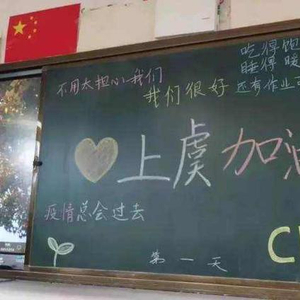 不用太担心我们
我们很好
吃得饱
睡得暖
还有作业
上虞加油
疫情总会过去
第一天
C